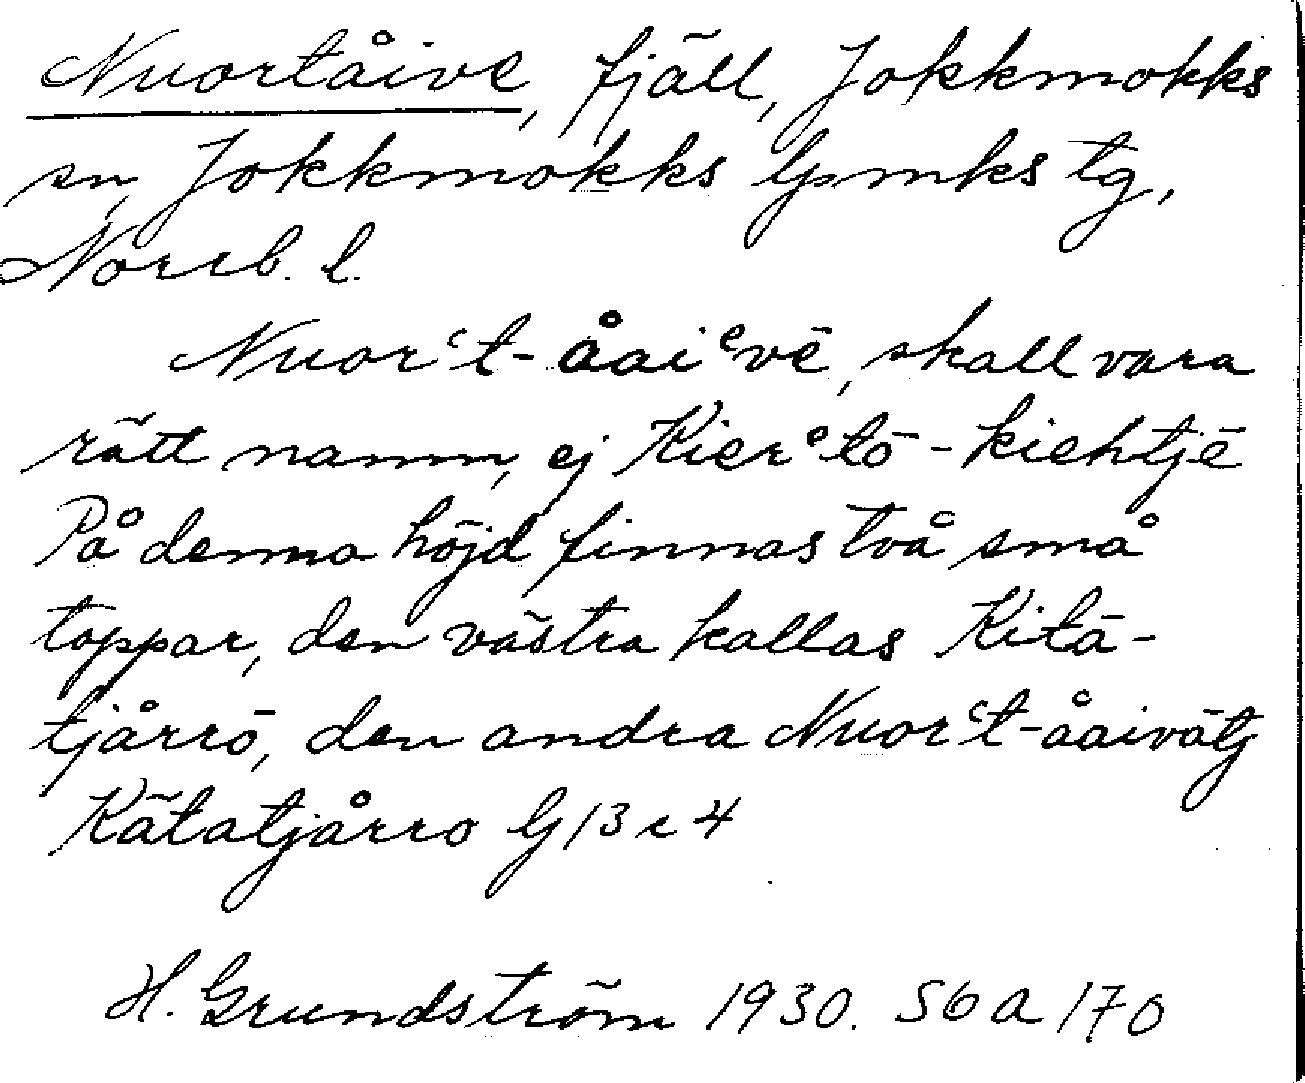 Nuortåive, fjäll, Jokkmokks
sn, Jokkmokks lpmks tg,
Norrb. l.
Nuorʿt-åaiᵉvē, skall vara
rätt namn, ej Kierᵉtō-kiehtjē
På denna höjd finnas två små
toppar, den västra kallas Kitā-
tjårrō, den andra Nuorʿt-åaivātj
Kätatjårro G 13 c 4
H. Grundström 1930. S6a 170